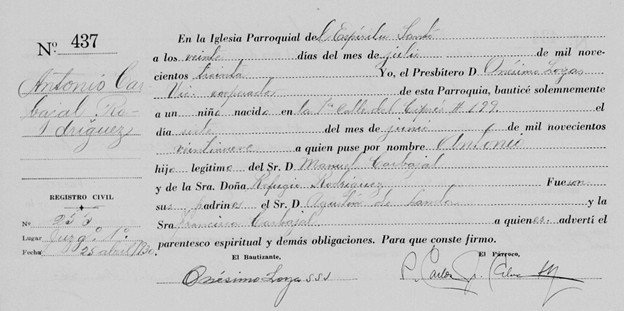 Nº 437
Antonio Car
bajal Ro-
dríguez
REGISTRO CIVIL
Nº 253
Lugar Juzgº 1º
Fecha 25 abril/930.
En la Iglesia Parroquial del Espíritu Santo
a los veinte días del mes de julio de mil nove-
cientos treinta Yo, el Presbítero D. Onésimo Loza
Vic. cooperador de esta Parroquia, bauticé solemnemente
a un niño nacido en la 1ª Calle del Ciprés # 699 el
día siete del mes de junio de mil novecientos
veintinueve a quien puse por nombre Antonio
hijo legítimo del Sr. D. Manuel Carbajal
y de la Sra. Doña Refugio Rodríguez Fueron
sus padrinos el Sr. D. Agustín de y la
Sra Francisca Carbajal a quienes advertí el
parentesco espiritual y demás obligaciones. Para que conste firmo.
El Bautizante, El Párroco,
Onésimo Loza SSJ P. Carlos